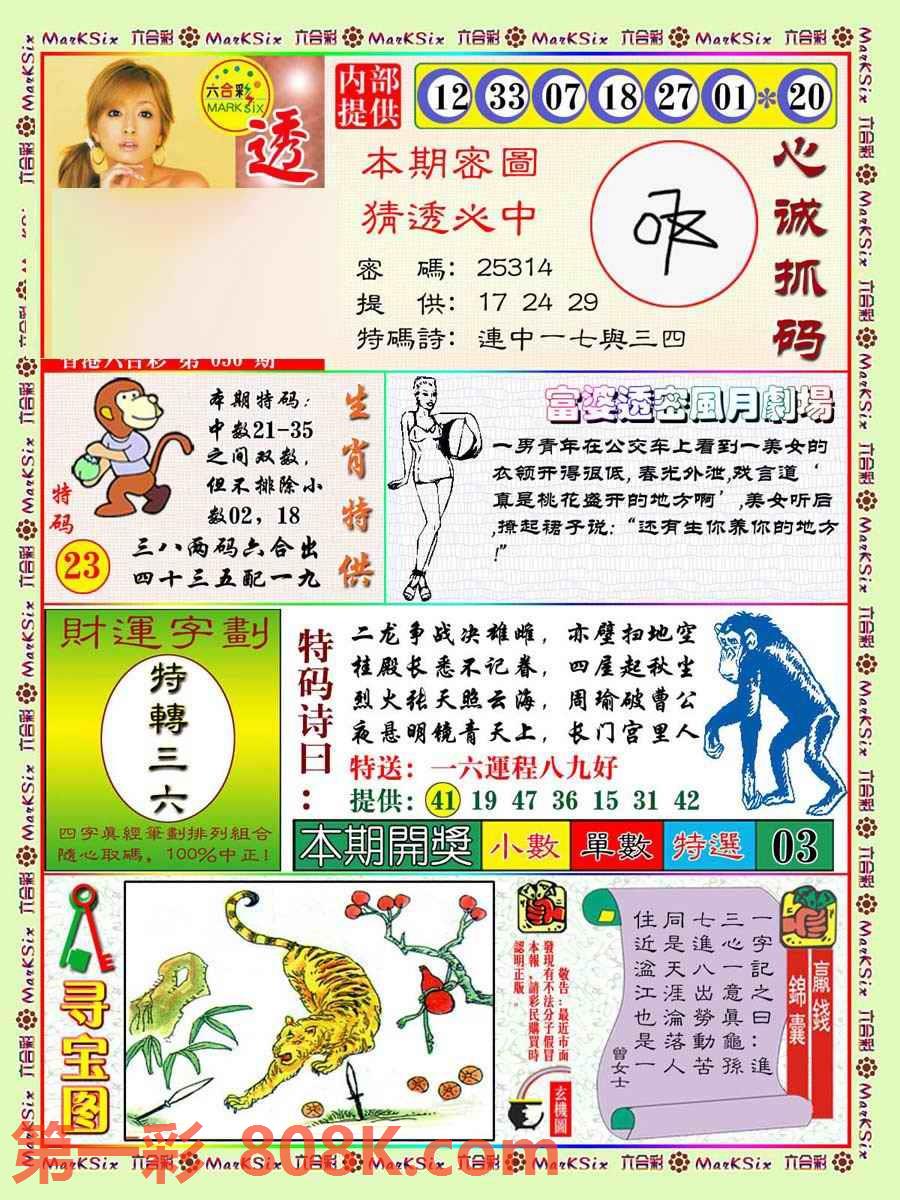 MarKSix 六合彩 MarKSix 六合彩 MarKSix 六合彩 MarKSix 六合彩 MarKSix 六合彩
六合彩
MARKSix
透
内部
提供
12 33 07 18 27 01 * 20
本期密圖
猜透必中
密 碼：25314
提 供：17 24 29
特碼詩：連中一七與三四
心诚抓码
香港六合彩 第 050 期
特码
23
本期特码：
中数21-35
之间双数，
但不排除小
数02，18
三八两码六合出
四十三五配一九
生肖特供
富婆透密風月劇場
一男青年在公交车上看到一美女的
衣领开得很低，春光外泄,戏言道‘
真是桃花盛开的地方啊’,美女听后
,撩起裙子说：“还有生你养你的地方
!”
財運字劃
特轉三六
四字眞經筆劃排列組合
隨心取碼，100%中正!
特码诗曰：
二龙争战决雄雌，赤壁扫地空
桂殿长悉不记春，四屋起秋尘
烈火张天照云海，周瑜破曹公
夜悬明镜青天上，长门宫里人
特送：一六運程八九好
提供：41 19 47 36 15 31 42
本期開獎 小數 單數 特選 03
寻宝图
敬告：最近市面
發現有不法分子假冒
本報，請彩民購買時
認明正版。
玄機圖
贏錢
錦囊
一字記之曰：進
三心一意眞龜孫
七進八出勞動苦
同是天涯淪落人
住近湓江也是一
曾女士
第一彩 808K.com
MarKSix 六合彩 MarKSix 六合彩 MarKSix 六合彩 MarKSix 六合彩 MarKSix 六合彩